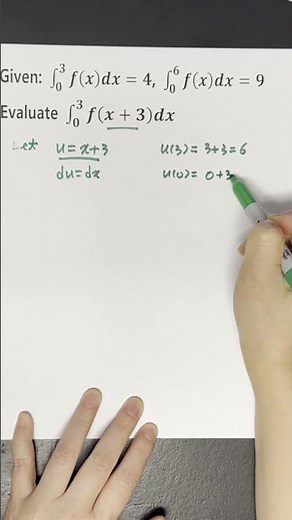 Given: ∫₀³ f(x)dx = 4, ∫₀⁶ f(x)dx = 9
Evaluate ∫₀³ f(x + 3)dx
Let u = x+3 u(3) = 3+3 = 6
du = dx u(0) = 0+3